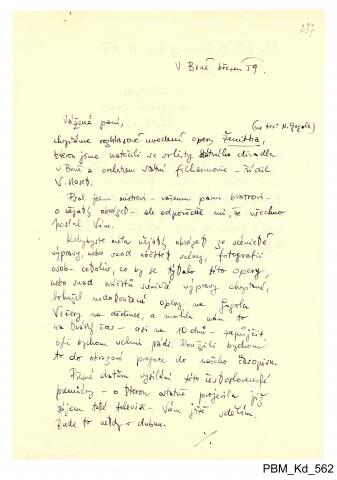 237
V Brně březen 59.
Vážená paní,
(na text N. Gogola)
chystáme rozhlasové uvedení opery Ženitba,
kterou jsme natočili se sólisty státního divadla
v Brně a orchestrem státní filharmonie – řídil
V. Nosek.
Psal jsem mistrovi – vašemu panu bratrovi –
o nějaký obrázek – ale odpověděl mi, že všechno
poslal Vám.
Kdybyste měla nějaký obrázek se scénické
výpravy, nebo snad náčrtek scény, fotografii
osob – cokoliv, co by se týkalo této opery,
nebo snad náčrtů scénické výpravy chystané,
bohužel nedokončené opery na Gogola
Večery na dědince, a mohla nám to
na krátký čas – asi na 10 dnů – zapůjčit,
byli bychom velmi rádi. Použili bychom
to do obrazové progr. do našeho časopisu.
Přesné datum vysílání této československé
premiéry – o kterou ostatně projevila již
zájem také televise – Vám ještě sdělím.
Bude to někdy v dubnu.
./.
PBM_Kd_562